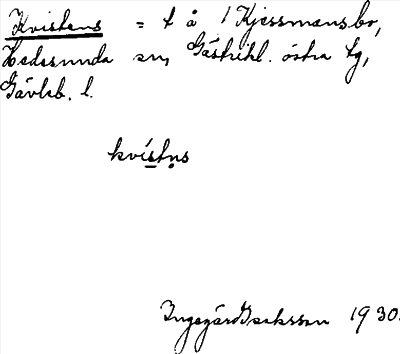 Kvistens = t å i Kjessmansbo,
Hedesunda sn, Gästrikl. östra tg,
Gävleb. l.
kvístns
Ingegärd Isaksson 1930.